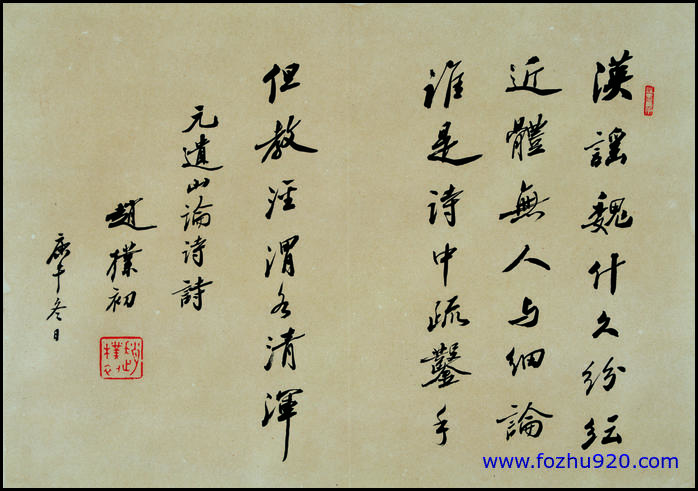 漢謠魏什久紛紜
近體無人与細論
誰是诗中疏鑿手
但教涇渭各清渾
元遺山論诗詩
趙樸初
庚午冬日
趙樸初
www.fozhu920.com